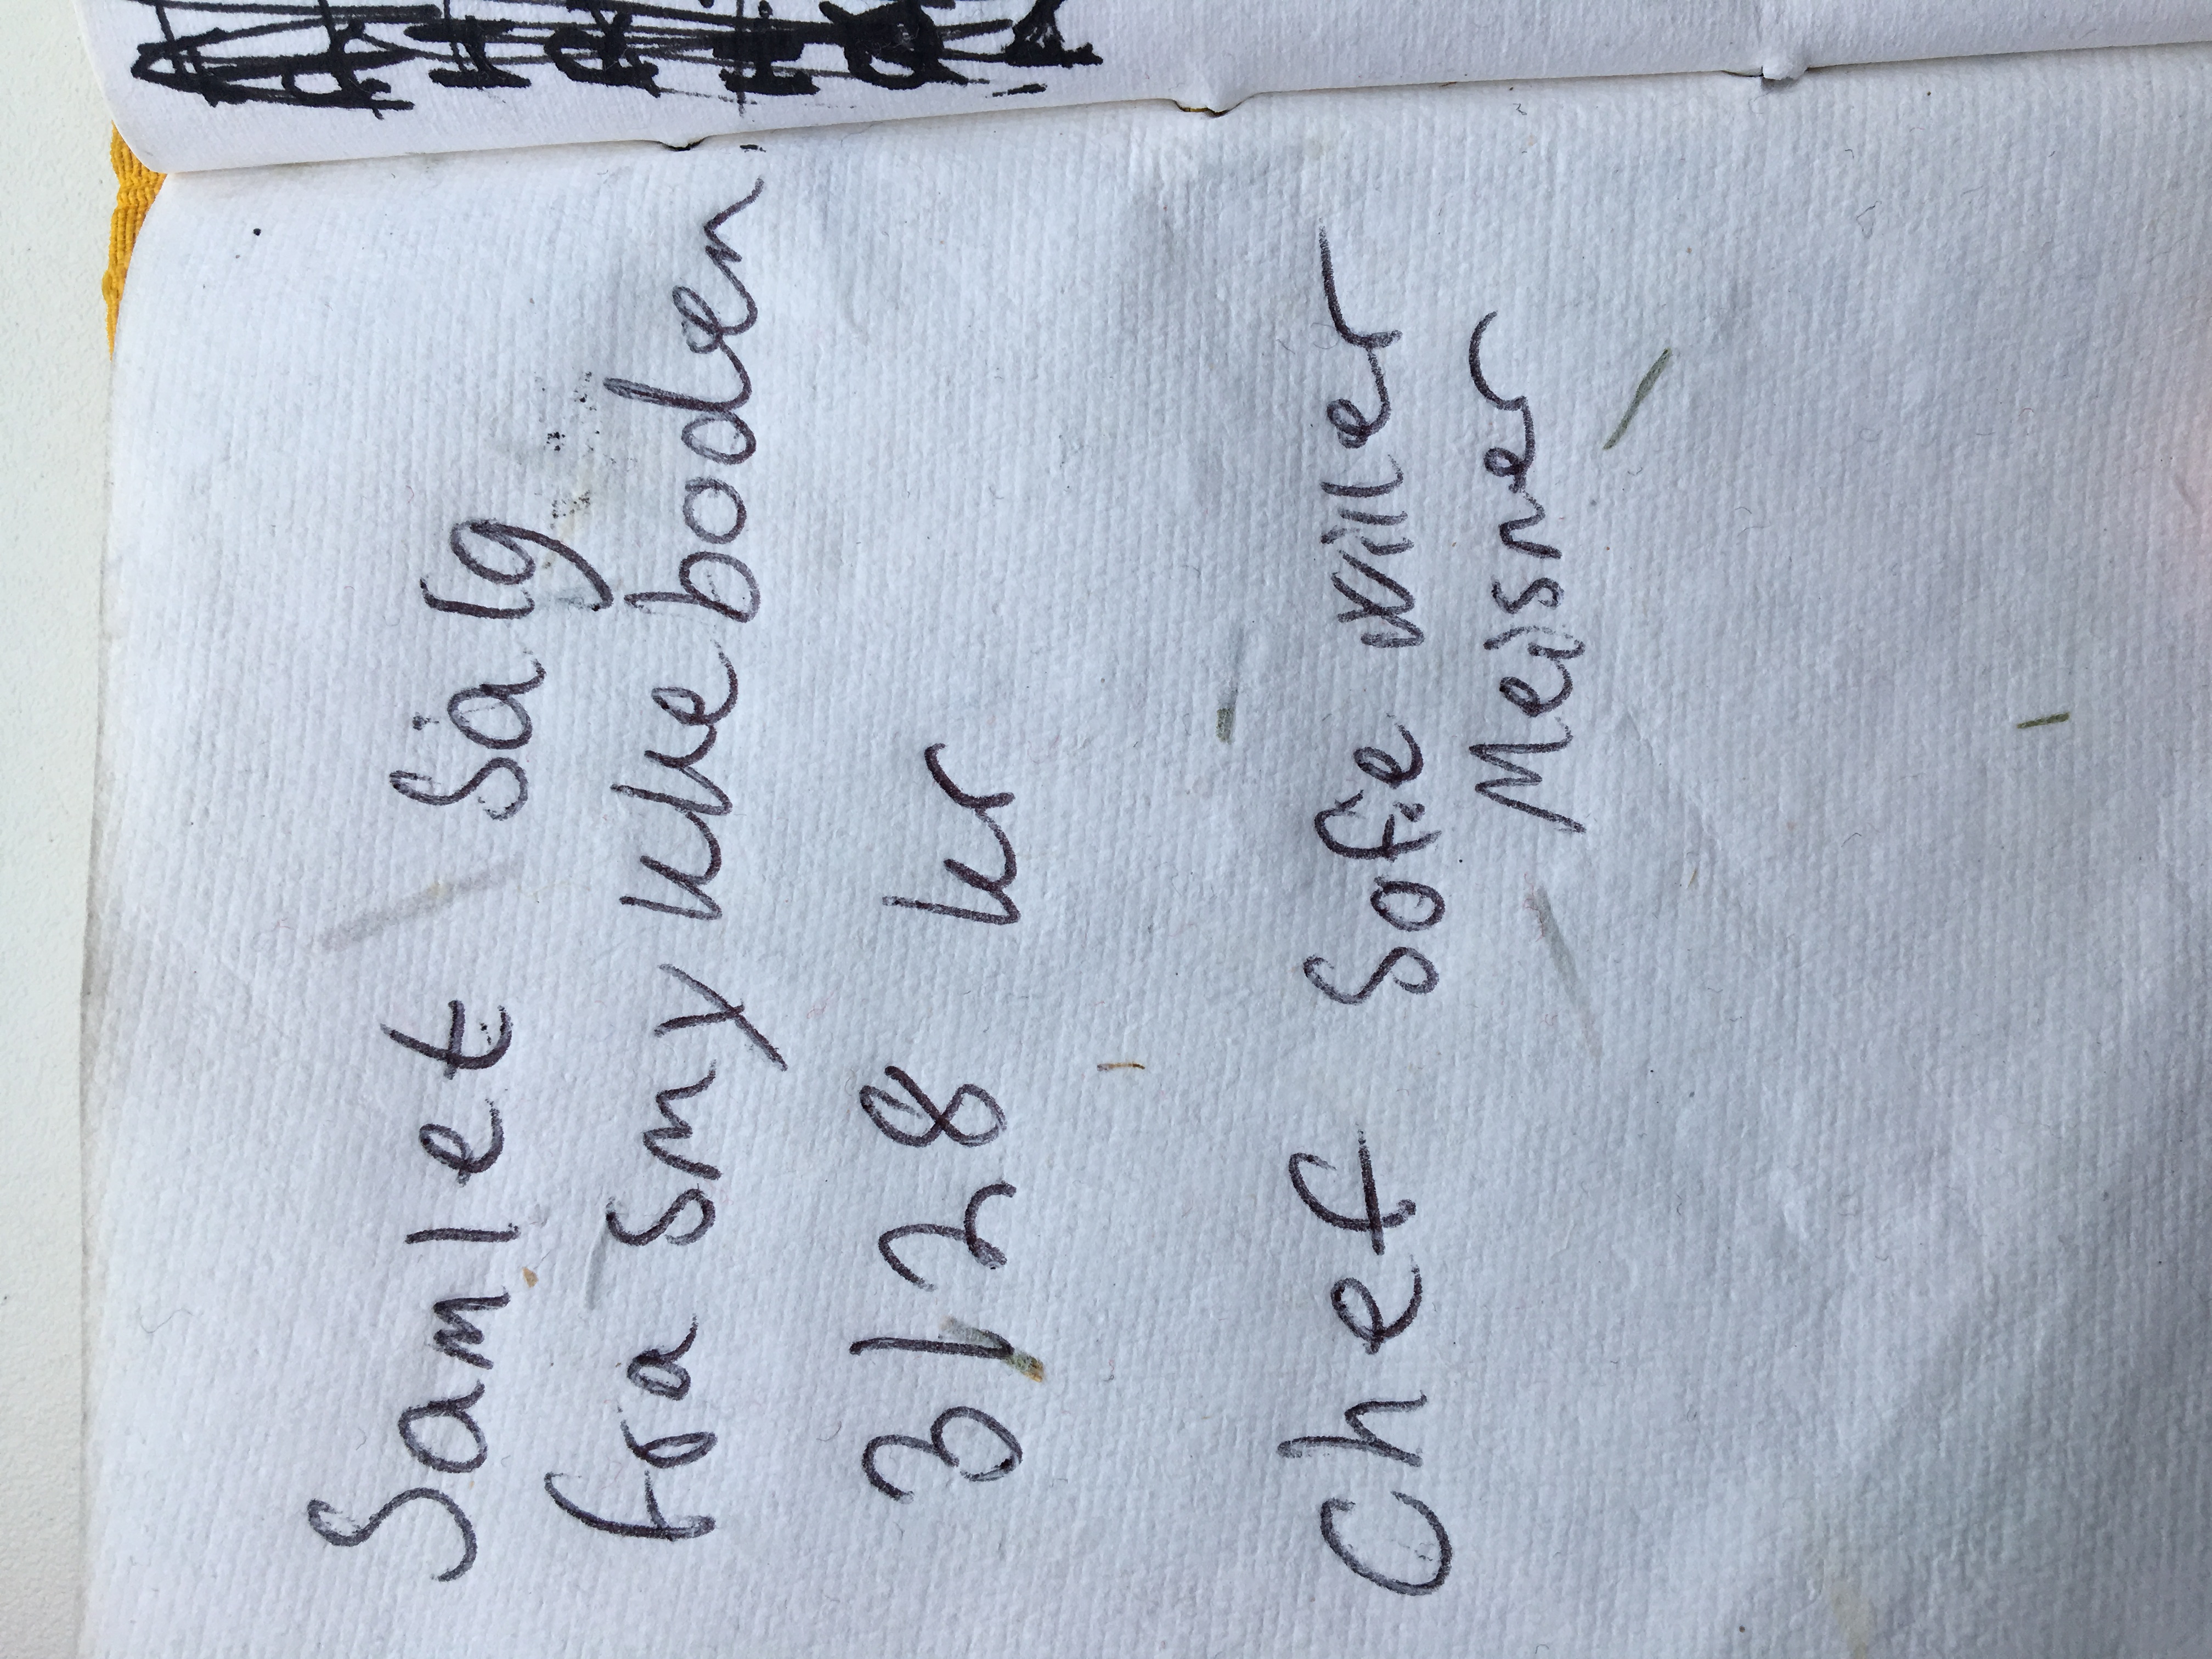 Samlet Salg
fra Smykkeboden
3128 kr
Chef Sofie
Meisner